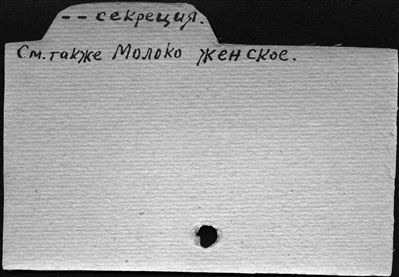 -- секреция.
См. также Молоко женское.